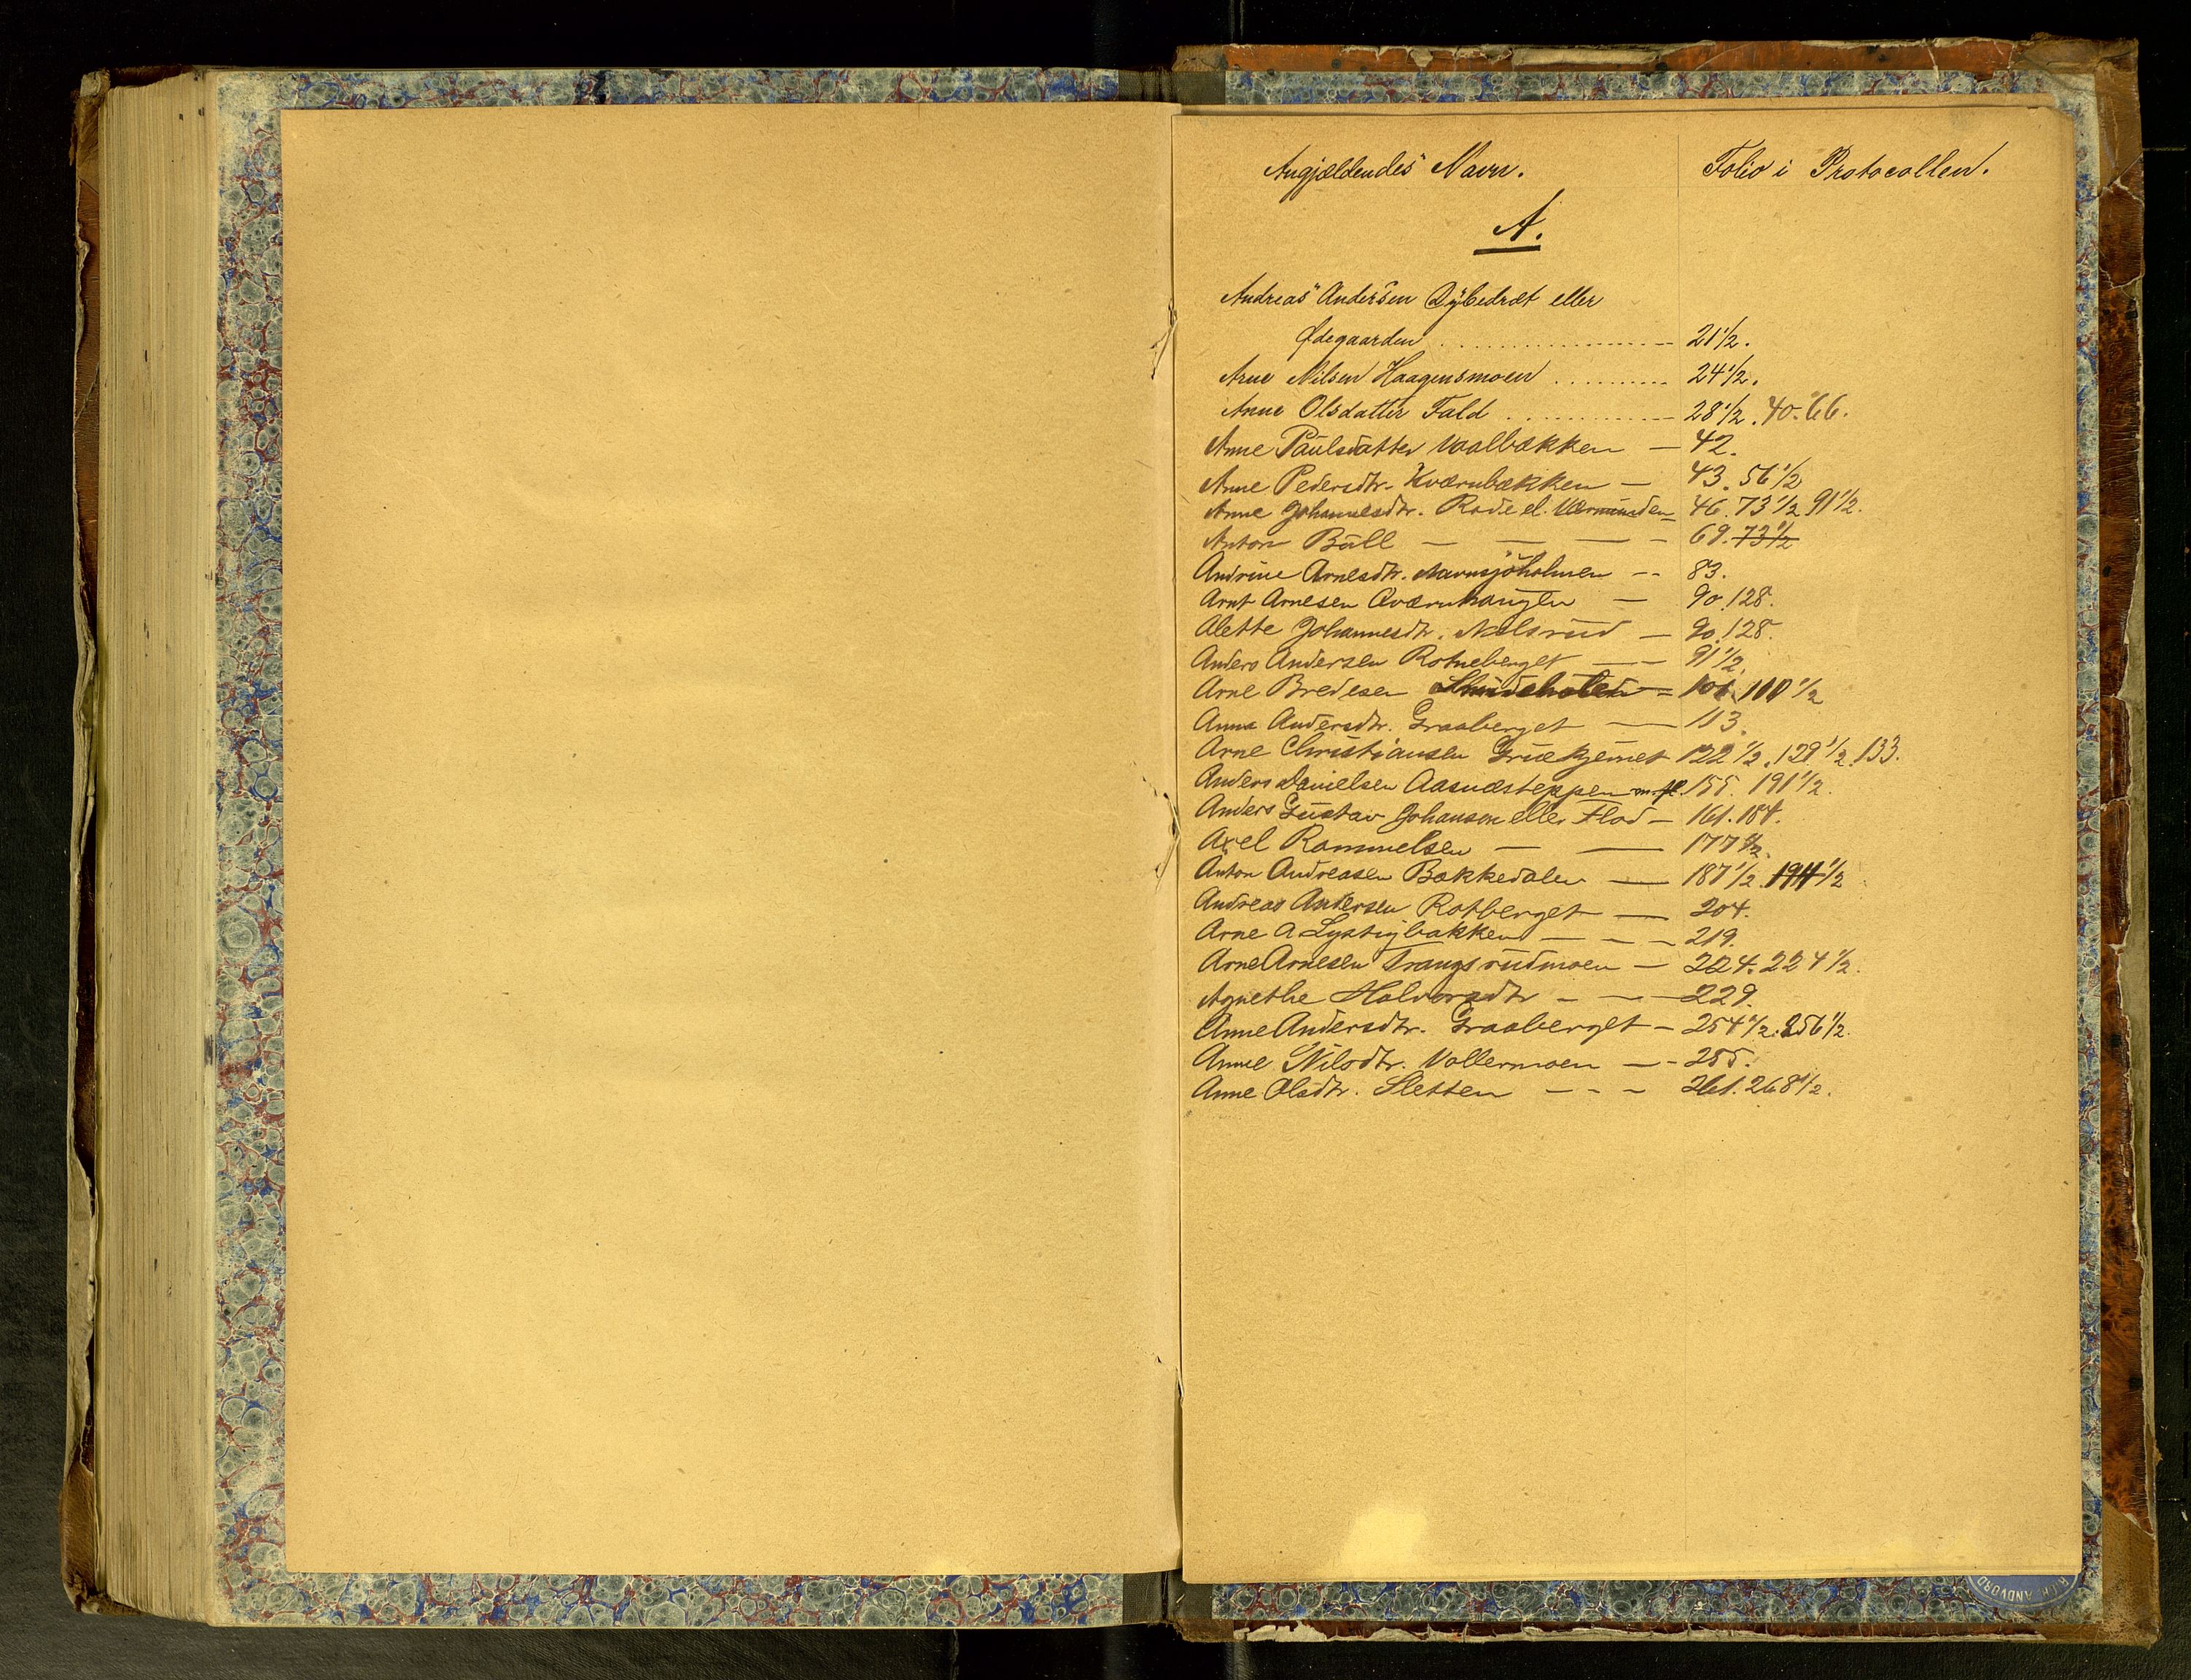 Angjældendes Navn. Folio i Protocollen.
A.
Andreas Andersen Dybedræt eller
Ødegaarden .................. 21 1/2.
Arne Nilsen Haagensmoen .......... 24 1/2.
Anne Olsdatter Fald ............. 28 1/2. 40. 66.
Anne Paulsdatter Vaalbækken — 42.
Anne Pedersdtr. Kværnbækken — 43. 56 1/2
Anne Johannesdtr. Rode el. Værmunden — 46. 73 1/2 91 1/2.
Anton Bull — — — — 69. 73 1/2
Andrine Arnesdtr. Navnsjöholmen — 83.
Arnt Arnesen Qværnhaugen — 90. 128.
Alette Johannesdtr. Nilsrud — 90. 128.
Anders Andersen Rotneberget — — 91 1/2.
Arne Bredesen — 101 1/2
Anna Andersdtr. Graaberget — 113.
Arne Christiansen Gruekjernet 122 1/2. 129 1/2. 133.
Anders Danielsen Aasnæsteppen m. fl. 155. 191 1/2.
Anders Gustav Johanson eller Flod — 161. 184.
Axel Rammelsen — — 177 1/2.
Anton Andreasen Bakkedalen — 187 1/2. 191 1/2
Andreas Andersen Rotberget — 204.
Arne A Lystigbakken — — — 219.
Arne Arnesen Trangsrudmoen — 224. 224 1/2.
Agnethe Halvorsdtr — — — 229.
Anne Andersdtr. Graaberget — 254 1/2. 256 1/2.
Anne Nilsdtr. Vollermoen — — 255.
Anne Olsdtr. Sletten — — — 261. 268 1/2.